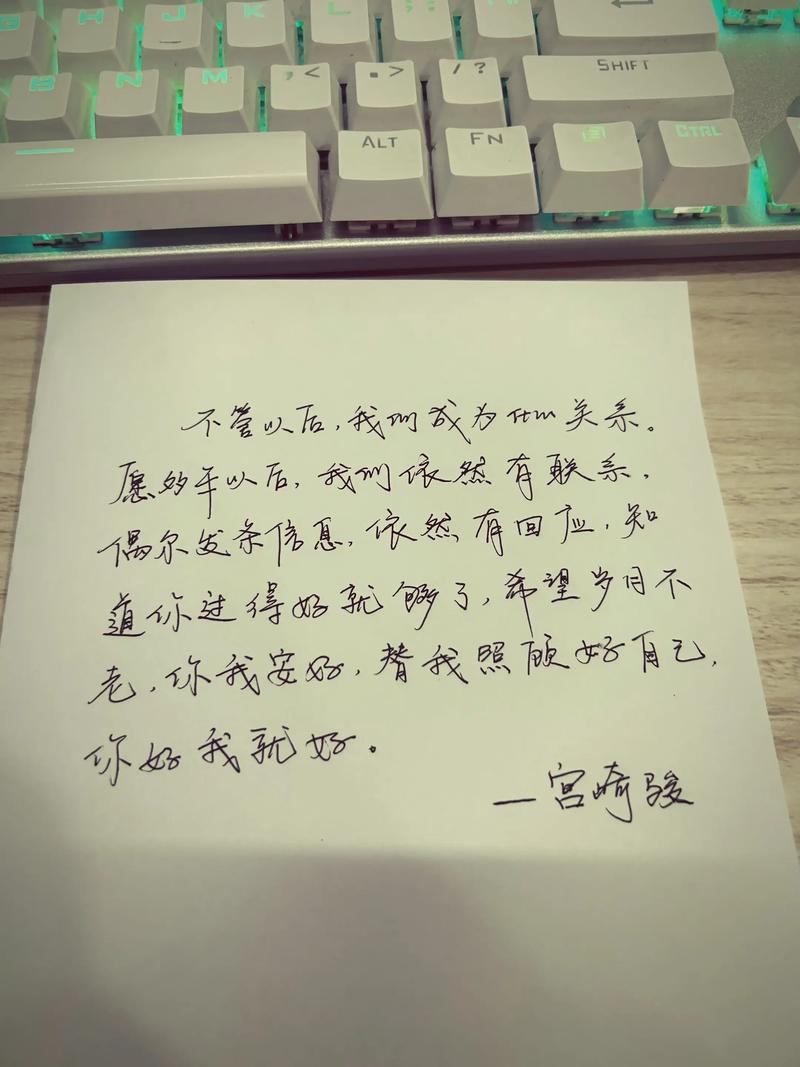 G H J K L ; :
B N M , < . > / ? SHIFT
ALT FN CTRL
不管以后,我们成为什么关系。
愿多年以后,我们依然有联系,
偶尔发条信息,依然有回应,知
道你过得好就够了,希望岁月不
老,你我安好,替我照顾好自己,
你好我就好。
—宫崎骏